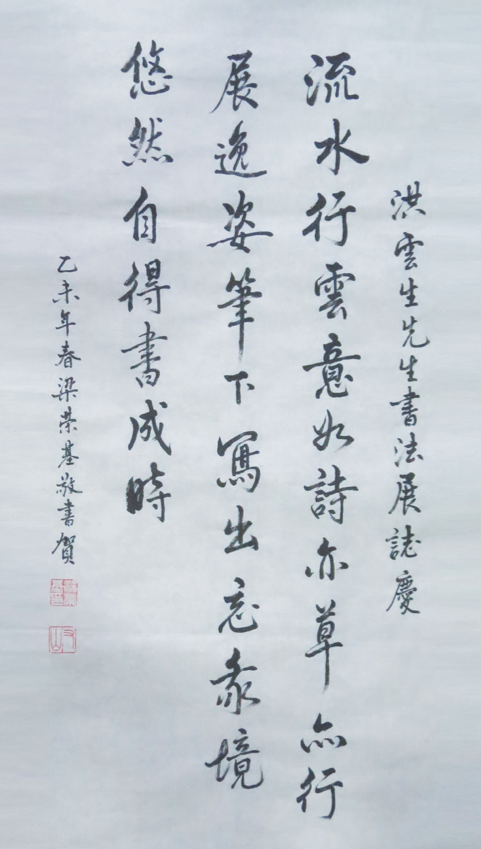 洪雲生先生書法展誌慶
流水行雲意如詩亦草亦行
展逸姿筆下寫出忘象境
悠然自得書成時
乙未年春梁榮基敬書賀